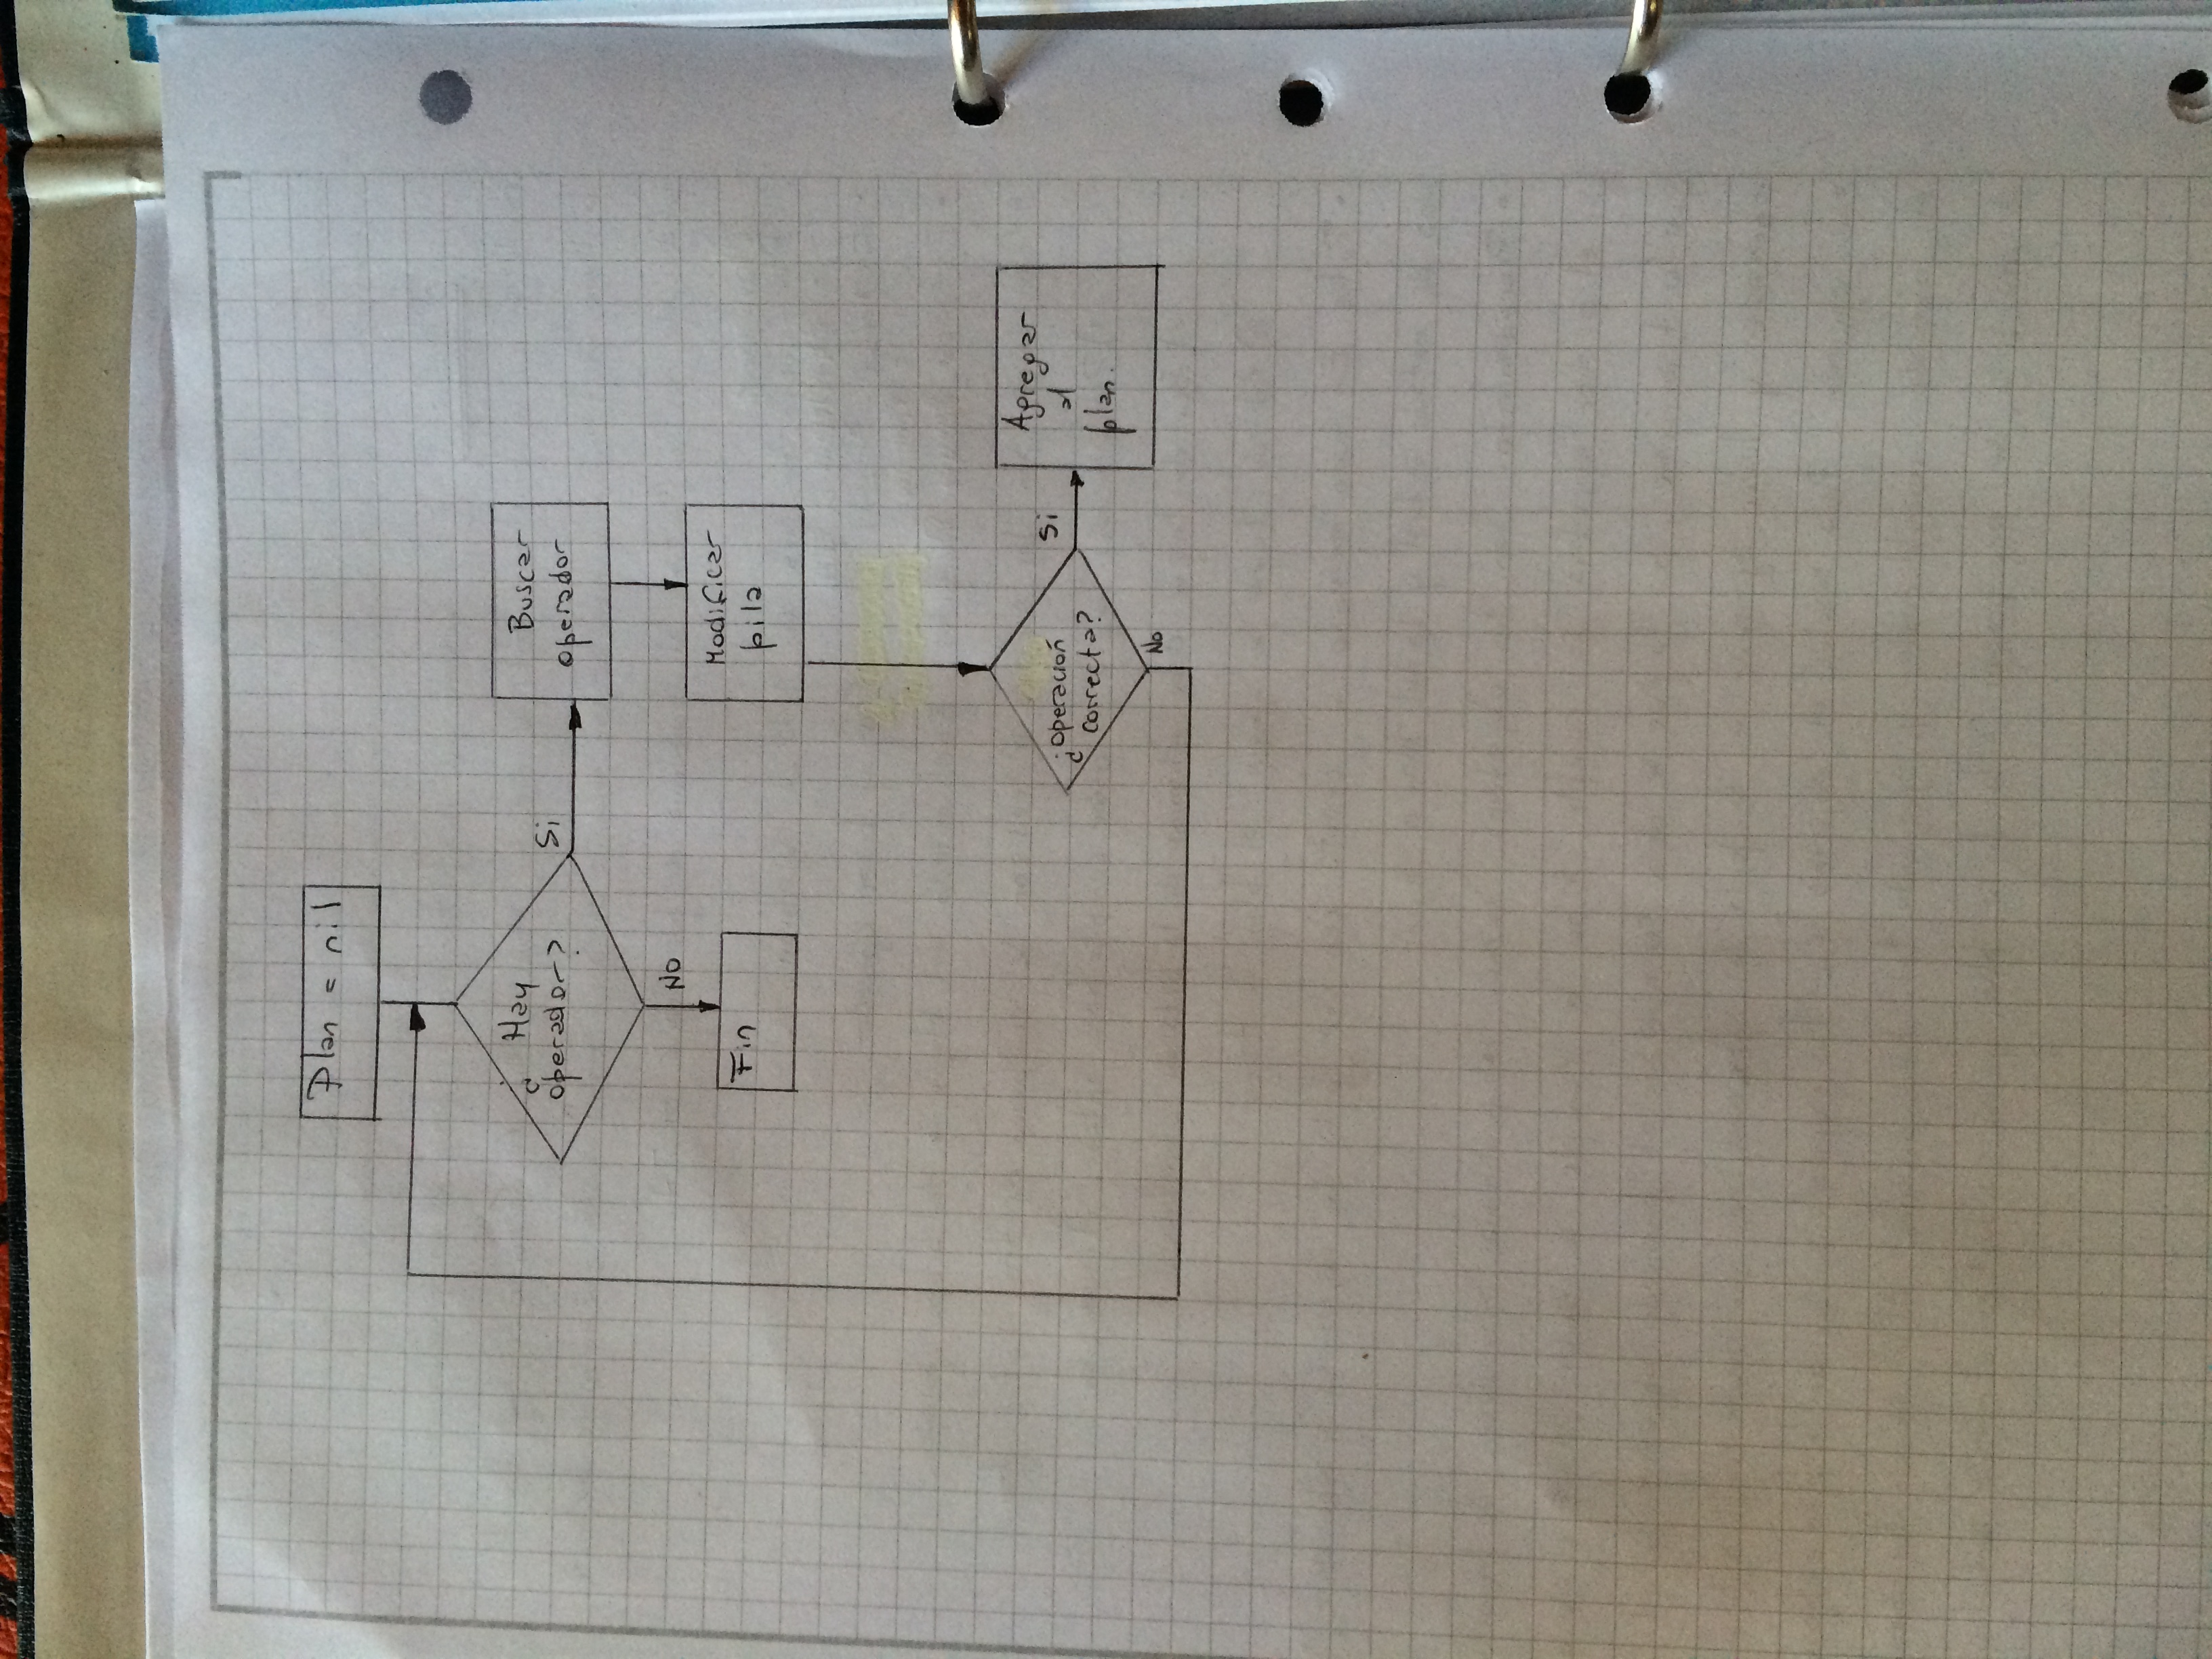 Plan = nil
¿ Hay
operador?
Si
Buscar
operador
No
Fin
Modificar
pila
¿operación
correcta?
Si
Agregar
al
plan.
No